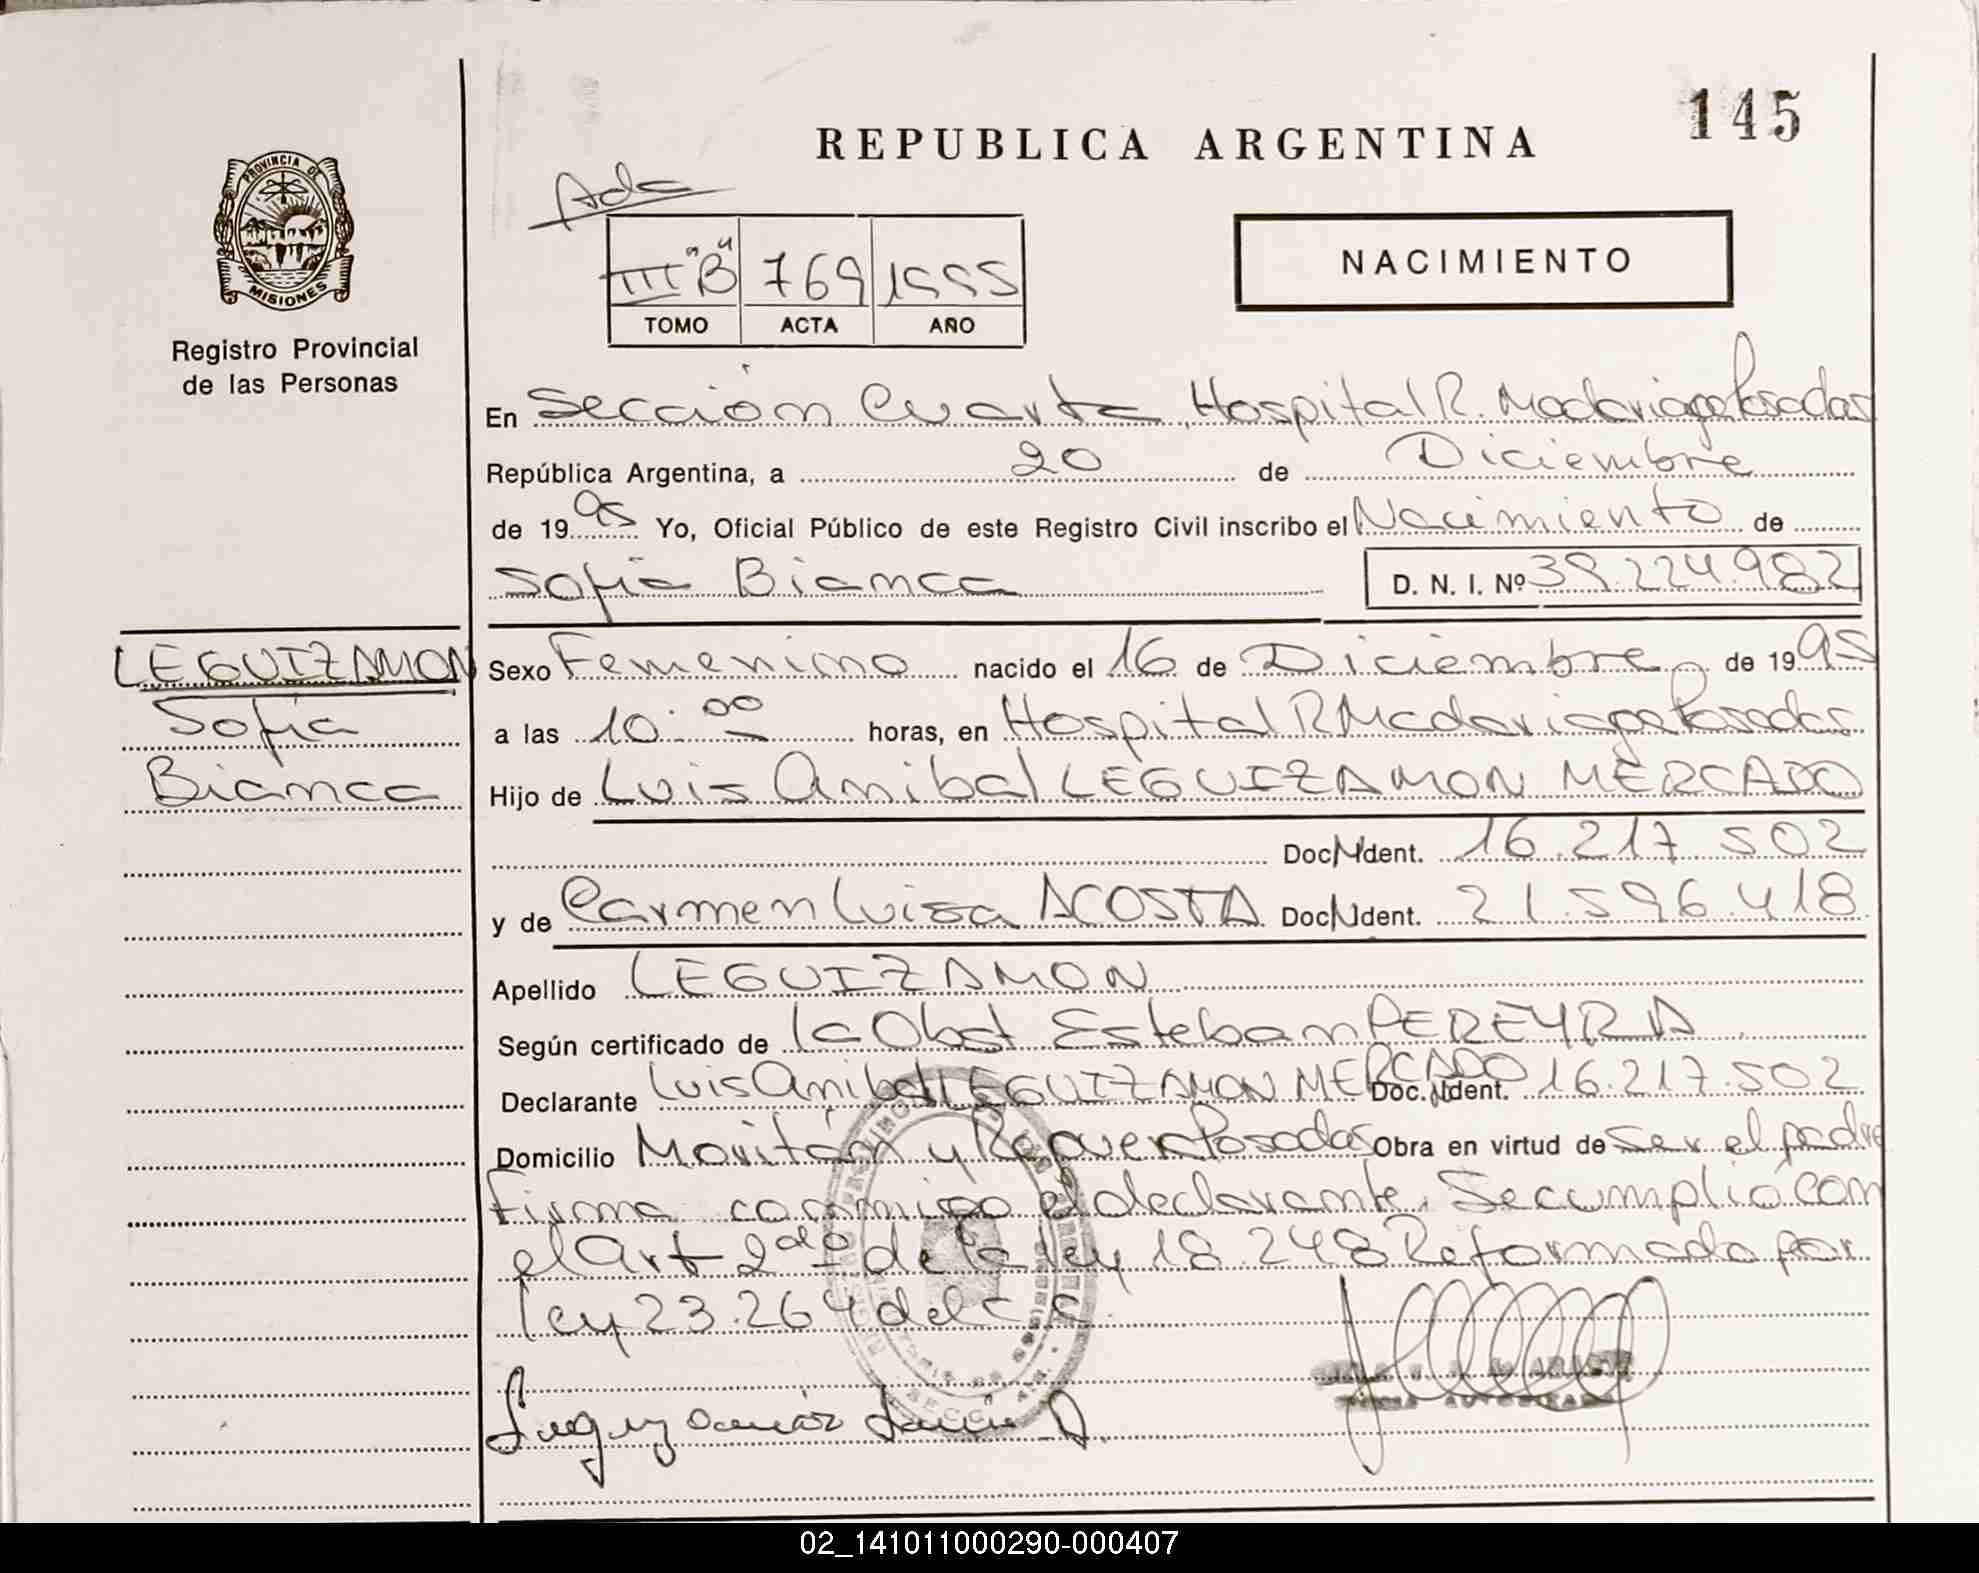 145
REPUBLICA ARGENTINA
PROVINCIA DE
MISIONES
Registro Provincial
de las Personas
III "B" 769 1995
TOMO ACTA AÑO
NACIMIENTO
En Sección Cuarta, Hospital R. Madariaga Posadas
República Argentina, a 20 de Diciembre
de 1995 Yo, Oficial Público de este Registro Civil inscribo el Nacimiento de
Sofia Bianca D. N. I. Nº 39.224.982
LEGUIZAMON
Sofia
Bianca
Sexo Femenino nacido el 16 de Diciembre de 1995
a las 10:00 horas, en Hospital R Madariaga Posadas
Hijo de Luis Anibal LEGUIZAMON MERCADO
Doc. Ident. 16.217.502
y de Carmen Luisa ACOSTA Doc. Ident. 21.596.418
Apellido LEGUIZAMON
Según certificado de la Obst Esteban PEREYRA
Declarante Luis Anibal LEGUIZAMON MERCADO Doc. Ident. 16.217.502
Domicilio y Posadas Obra en virtud de ser el padre
Firma conmigo el declarante. Se cumplió con
el Art 2do de la ley 18.248 Reformada por
ley 23.264 del C.C.
02_141011000290-000407